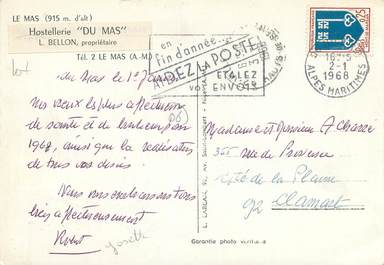 LE MAS (915 m. d'alt)
Hostellerie "DU MAS"
L. BELLON, propriétaire
Tél. 2 LE MAS (A.-M)
en
fin d'année
AIDEZ LA POSTE
ÉTALEZ
VOS ENVOIS
0,25
16H-5
2-1
1968
ALPES MARITIMES
du Mas le 1er
Nos vœux les plus affectueux
de santé et de bonheur pour
1968, ainsi que la réalisation
de tous vos désirs.
Nous vous embrassons tous
très affectueusement
Robert Josette
(06)
Madame et Monsieur A
365 rue de Provence
Cité de la Plaine
92 Clamart
Garantie photo véritable